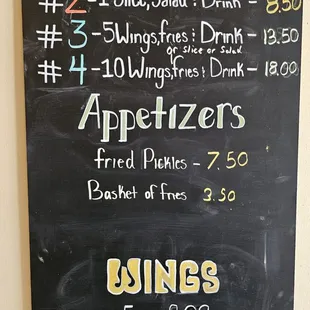 #2 - 1 Slice, Salad & Drink - 8.50
#3 - 5 Wings, fries & Drink - 13.50
or Slice or Salad
#4 - 10 Wings, fries & Drink - 18.00
Appetizers
fried Pickles - 7.50
Basket of fries 3.50
WINGS